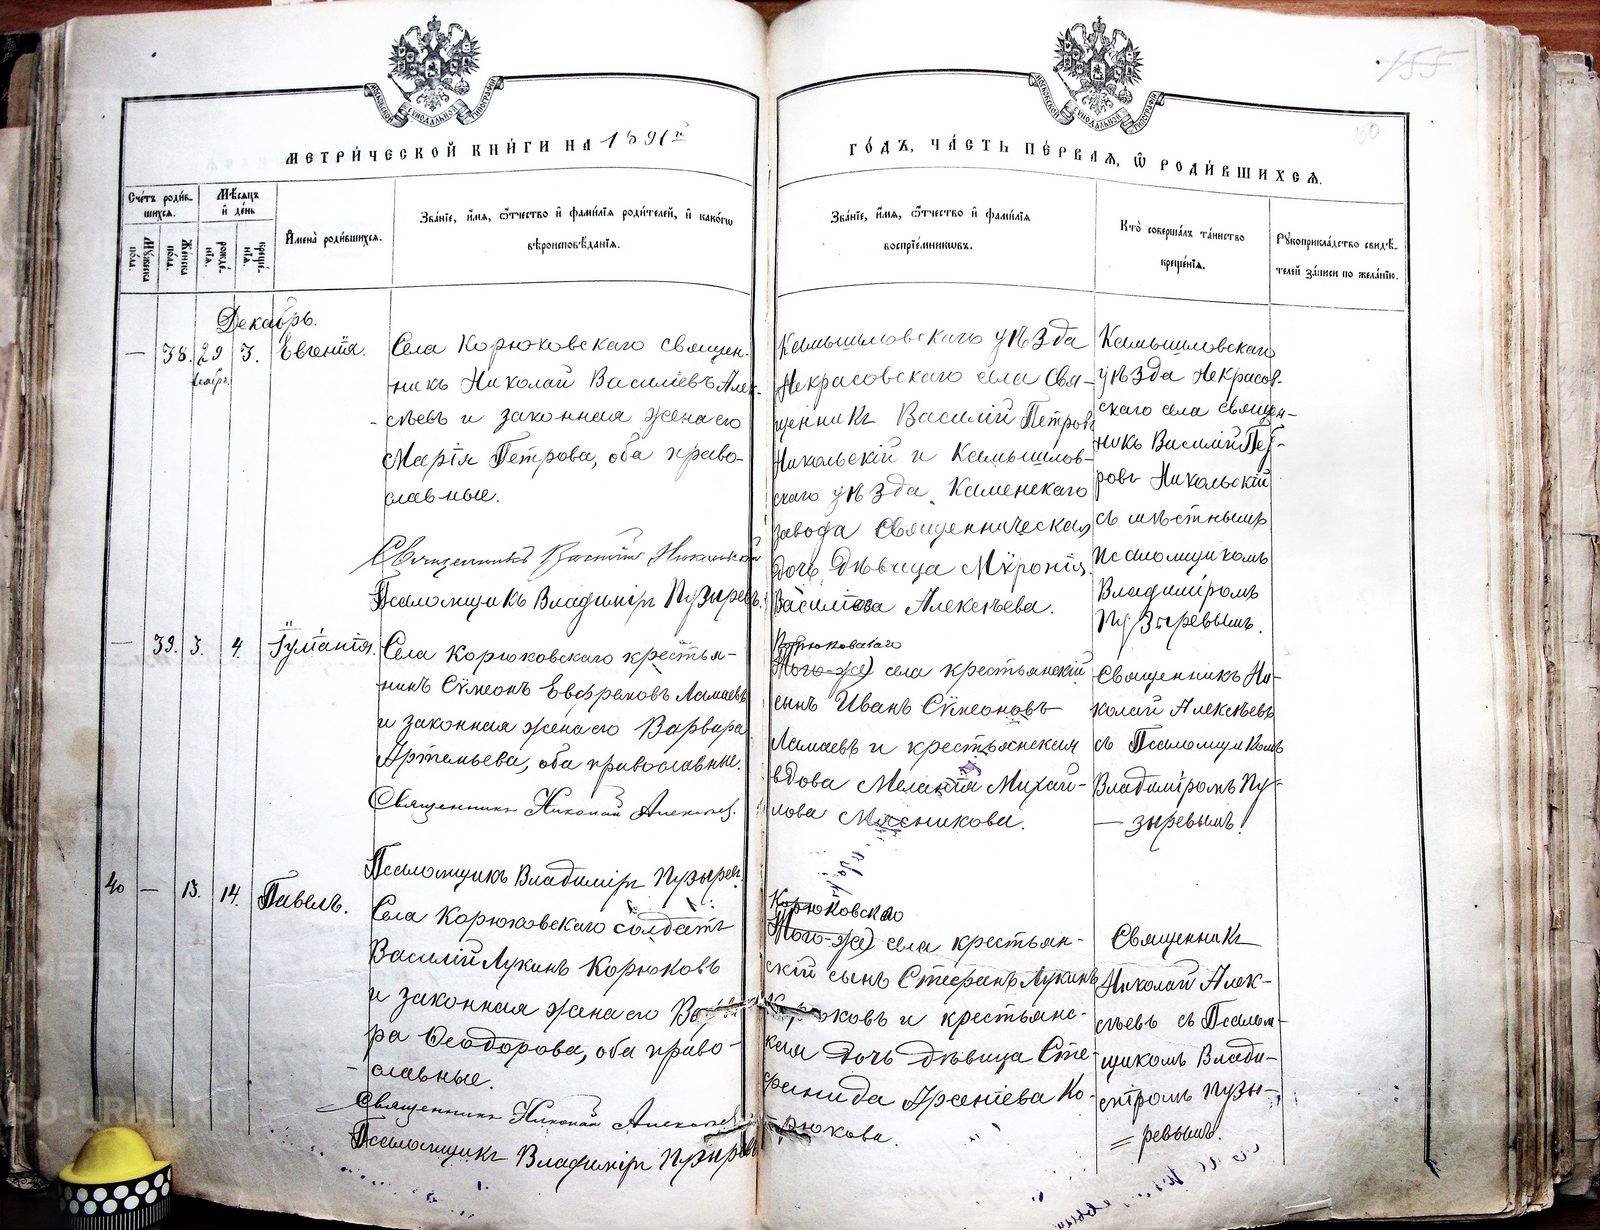 МЕТРИ́ЧЕСКОЙ КНИ́ГИ НА 1891й
ГО́ДЪ, ЧА́СТЬ ПЕ́РВАЯ, Ѿ РОДИ́ВШИХСЯ.
155
Сче́тъ роди́в-
шихся.
Му́жеска по́ла.
Же́нска по́ла.
Мѣ́сяцъ
и҆ де́нь
рожде́нїя.
креще́нїя.
И҆мена̀ роди́вшихся.
Зва́нїе, и҆́мя, ѻ҆́тчество и҆ фами́лїя роди́телей, и҆ како́гѡ
вѣроисповѣ́данїя.
Зва́нїе, и҆́мя, ѻ҆́тчество и҆ фами́лїя
воспрїе́мниковъ.
Кто̀ соверша́лъ та́инство
креще́нїя.
Рꙋкоприкла́дство свидѣ́-
телей за́писи по жела́нїю.
Декабрь.
— 38. 29 3. Евгенія.
ноябр.
Села Корюковскаго священ-
никъ Николай Василіевъ Алек-
сѣевъ и законная жена его
Марія Петрова, оба право-
славные.
Священникъ Василій Никольскій
Псаломщикъ Владиміръ Пузыревъ.
Камышловскаго уѣзда
Некрасовскаго села Свя-
щенникъ Василій Петровъ
Никольскій и Камышлов-
скаго уѣзда, Каменскаго
завода Священническая
дочь, дѣвица Мѵропія
Василіева Алексѣева.
Камышловскаго
уѣзда Некрасов-
скаго села священ-
никъ Василій Пет-
ровъ Никольскій
съ мѣстнымъ
псаломщикомъ
Владиміромъ
Пузыревымъ.
— 39. 3. 4. Іуліанія.
Села Корюковскаго крестья-
нинъ Сѵмеонъ Евфраковъ Ламаевъ
и законная жена его Варвара
Артемьева, оба православные.
Священникъ Николай Алексѣев.
Псаломщикъ Владиміръ Пузырев.
Корюковскаго
Того-же) села крестьянскій
сынъ Иванъ Сѵмеоновъ
Ламаевъ и крестьянская
вдова Меланія Михай-
лова Мясникова.
Священникъ Ни-
колай Алексѣевъ
съ Псаломщикомъ
Владиміромъ Пу-
— зыревымъ.
40 — 13. 14. Павелъ.
Села Корюковскаго солдатъ
Василій Лукинъ Корюковъ
и законная жена его
ра Ѳеодорова, оба право-
славные.
Священникъ Николай Алексѣев
Псаломщикъ Владиміръ Пузырев
Корюковскаго
Того-же) села крестьян-
скій сынъ Стефанъ Лукинъ
Корюковъ и крестьянс-
кая дочь дѣвица Сте-
фанида Арсеніева Ко-
рюкова.
Священникъ
Николай Алек-
сѣевъ съ Псалом-
щикомъ Влади-
міромъ Пузы-
= ревымъ.